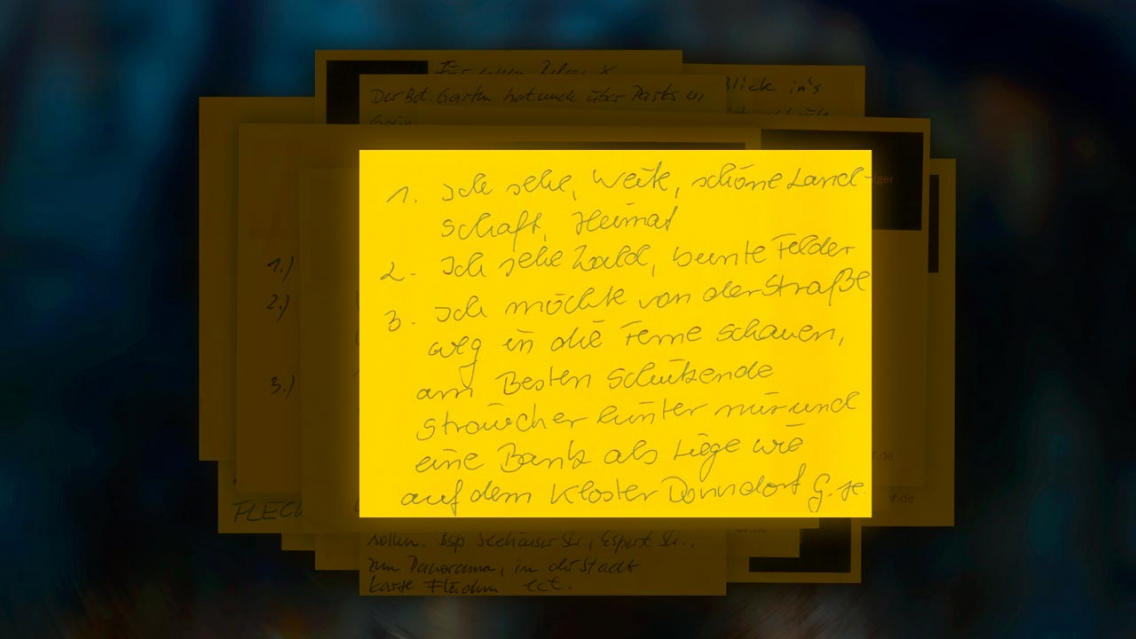 Für
Blick in's
Der Bot. Garten hat auch über Parks in
1.)
2.)
3.)
1. Ich sehe, Weite, schöne Land-
schaft, Heimat
2. Ich sehe Wald, bunte Felder
3. Ich möchte von der Straße
weg in die Ferne schauen,
am Besten schützende
Sträucher hinter mir und
eine Bank als Liege wie
auf dem Kloster Donndorf G.
FLEC
sollen. Bsp Seehäuser Str., Esperst. Str.,
zum Panorama, in der Stadt
karge Flächen ect.